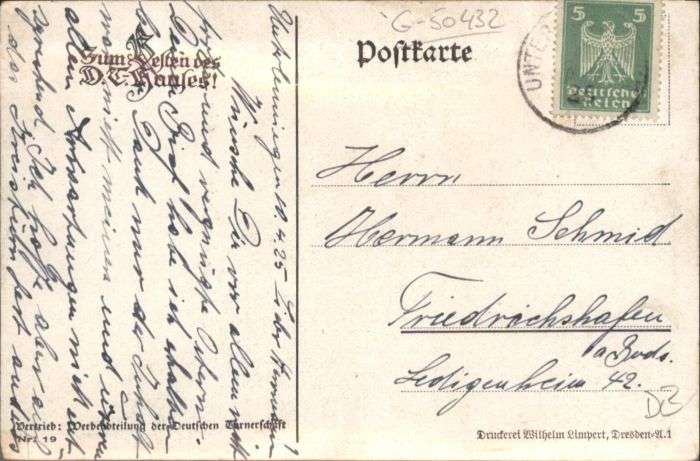 G-50432
Zum Besten des
D.T. Hauses!
Postkarte
5 5
Deutsches
Reich
UNTER
Herrn
Hermann Schmid
Friedrichshafen
a/Bods.
Ledigenheim 42.
DZ
10.4.25 Lieber Hermann!
Wünsche Dir vor allem recht
frohe und vergnügte Ostern.
Brief habe ich erhalten
nur der Inhalt
meinen und
allen Erwartungen nicht ent
sprechend. Ich hoffe aber
das
Vertrieb: Werbeabteilung der Deutschen Turnerschaft
Nr. 19
Druckerei Wilhelm Limpert, Dresden-A.1